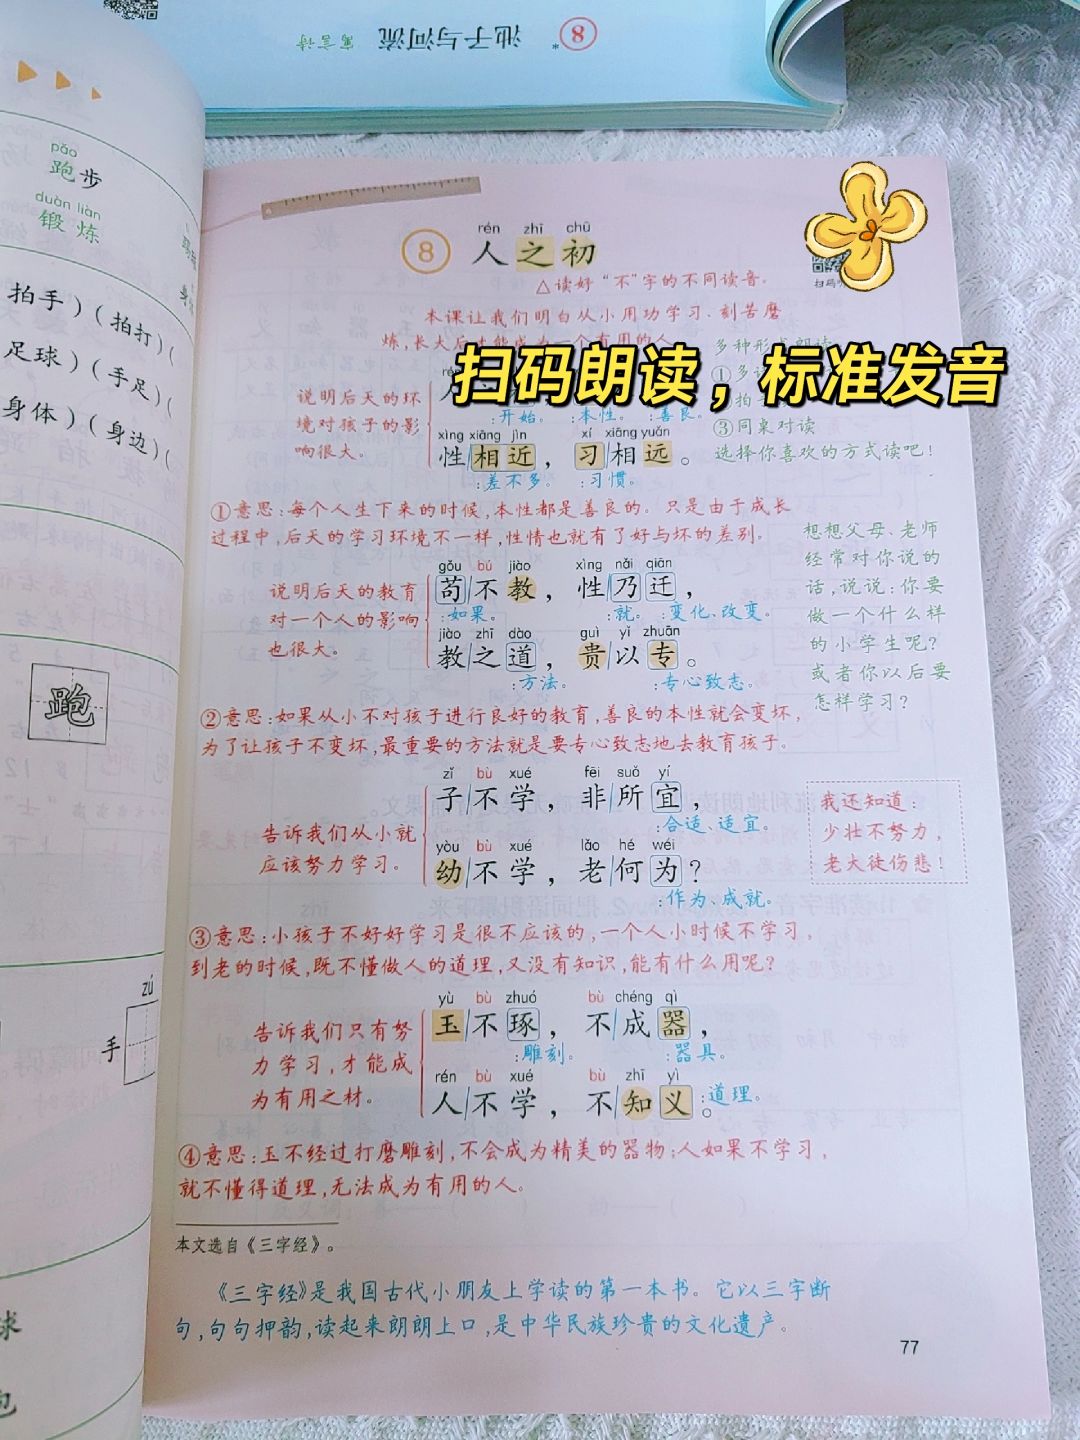 池子与河流 寓言诗
*8
pǎo
跑步
duàn liàn
锻炼
拍手）（拍打）（
足球）（手足）（
身体）（身边）（
跑
zú
手
球
rén zhī chū
8 人之初
扫码
△读好“不”字的不同读音。
本课让我们明白从小用功学习、刻苦磨
炼,长大后才能成为一个有用的人
扫码朗读，标准发音
多种形式朗读
③同桌对读
选择你喜欢的方式读吧！
说明后天的环
境对孩子的影
响很大。
:开始。 :本性。 :善良。
xìng xiāng jìn xí xiāng yuǎn
性相近，习相远。
:差不多。 :习惯。
①意思:每个人生下来的时候,本性都是善良的。只是由于成长
过程中,后天的学习环境不一样,性情也就有了好与坏的差别。
想想父母、老师
经常对你说的
话,说说:你要
做一个什么样
的小学生呢?
或者你以后要
怎样学习?
说明后天的教育
对一个人的影响
也很大。
gǒu bú jiào xìng nǎi qiān
苟不教，性乃迁，
:如果。 :就。 :变化、改变。
jiào zhī dào guì yǐ zhuān
教之道，贵以专。
:方法。 :专心致志。
②意思:如果从小不对孩子进行良好的教育,善良的本性就会变坏,
为了让孩子不变坏,最重要的方法就是要专心致志地去教育孩子。
告诉我们从小就
应该努力学习。
zǐ bù xué fēi suǒ yí
子不学，非所宜，
:合适、适宜。
yòu bù xué lǎo hé wéi
幼不学，老何为？
:作为、成就。
我还知道:
少壮不努力,
老大徒伤悲!
③意思:小孩子不好好学习是很不应该的,一个人小时候不学习,
到老的时候,既不懂做人的道理,又没有知识,能有什么用呢?
告诉我们只有努
力学习,才能成
为有用之材。
yù bù zhuó bù chéng qì
玉不琢，不成器，
:雕刻。 :器具。
rén bù xué bù zhī yì
人不学，不知义。
:道理。
④意思:玉不经过打磨雕刻,不会成为精美的器物;人如果不学习,
就不懂得道理,无法成为有用的人。
本文选自《三字经》。
《三字经》是我国古代小朋友上学读的第一本书。它以三字断
句,句句押韵,读起来朗朗上口,是中华民族珍贵的文化遗产。
77